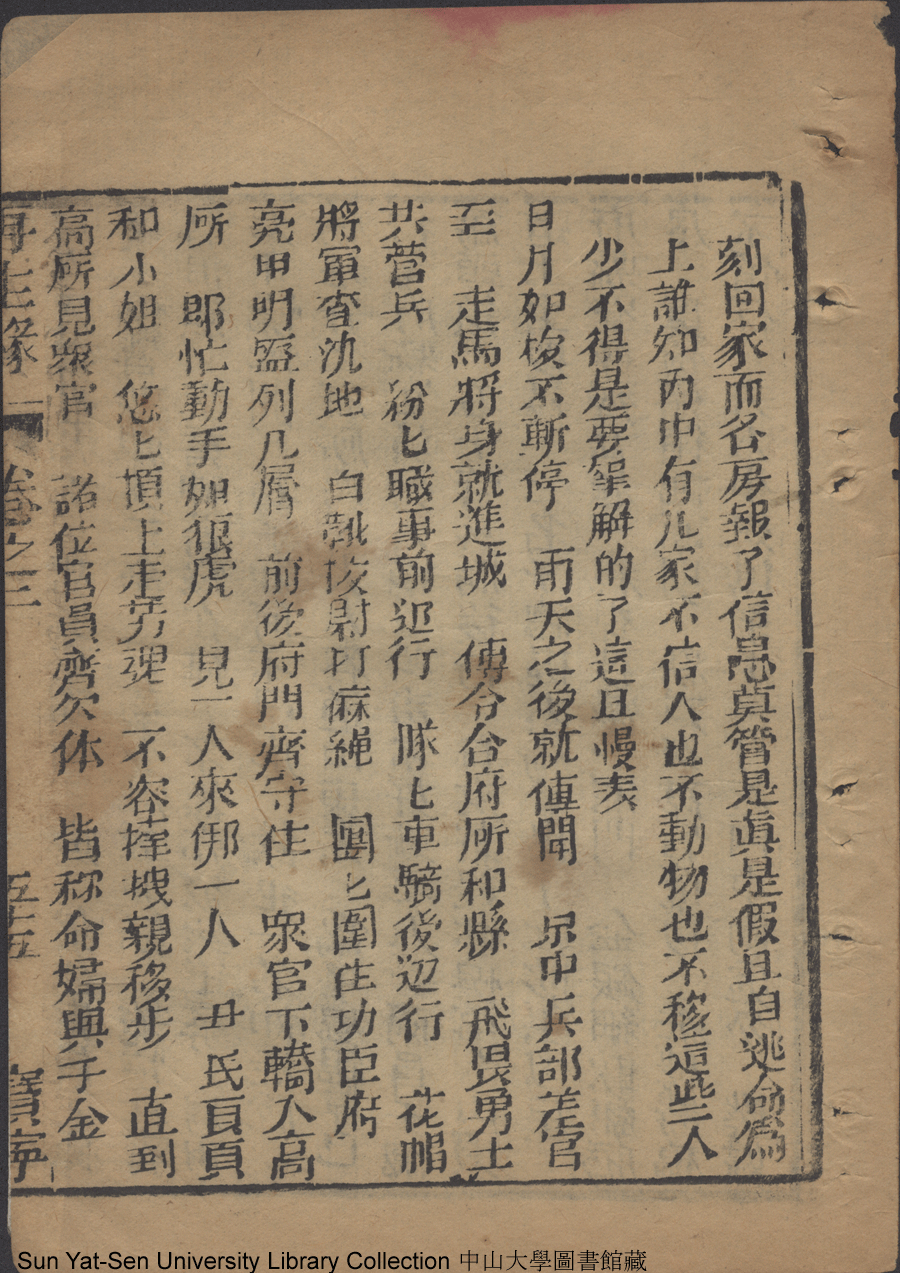 刻回家而名房報了信息真管是真是假且自逃命爲
上誰知內中有几家不信人也不動物也不移這些人
少不得是要拿解的了這且慢表
日月如梭不暫停　雨天之後就傳聞　京中兵部差官
至　走馬將身就進城　傳令台府所和縣　飛畏勇士
共營兵　紛匕職事前边行　隊匕車驕後边行　花帽
將軍查氿地　白　打麻繩　團匕圍住功臣府
亮甲明盔列几層　前後府門齊守住　眾官下轎入高
所　郎忙動手如狼虎　見一人來綁一人　尹氏頁頁
和小姐　悠匕頂上走　魂　不容　拽親移步　直到
高所見眾官　諸位官員齊欠休　皆称命婦與千金
再生緣　卷之三　五十五　寶寧
Sun Yat-Sen University Library Collection 中山大學圖書館藏